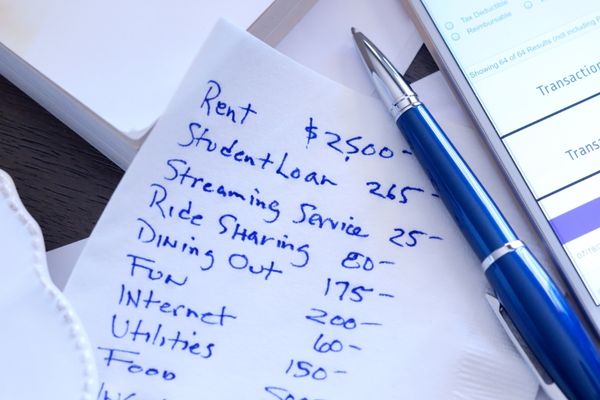 Rent $2,500-
Student Loan 265-
Streaming Service 25-
Ride Sharing 80-
Dining Out 175-
Fun 200-
Internet 60-
Utilities 150-
Food
Tax Deductible
Reimbursable
Showing 64 of 64 Results (not including
Transaction
Transa